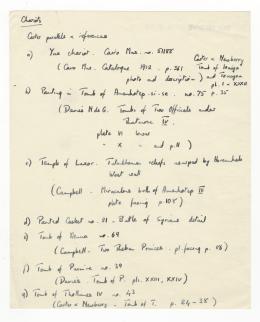 Chariots
Carter parallels & references
a) Yua chariot. Cairo Mus. no. 51188
(Cairo Mus. Catalogue 1912 p. 361
photo and description)
Carter & Newberry
Tomb of Iouiya
and Touiyou
pl. 1 - XXXII
p. 35
b) Painting in Tomb of Amenhotep-si-se. no. 75
(Davies N de G. Tombs of Two Officials under
Thutmose IV.
plate VI
- X - and p. 11)
c) Temple of Luxor. Tutankhamen reliefs usurped by Horemheb
West wall
(Campbell. Miraculous birth of Amenhotep III
plate facing p. 108)
d) Painted Casket no. 21 - Battle of Syrians detail
e) Tomb of Menna no. 69
(Campbell. Two Theban Princes. pl. facing p. 86)
f) Tomb of Puimre no. 39
(Davies. Tomb of P. pls. XXIII, XXIV)
g) Tomb of Thothmes IV no. 43
(Carter & Newberry - Tomb of T. p. 24-38)